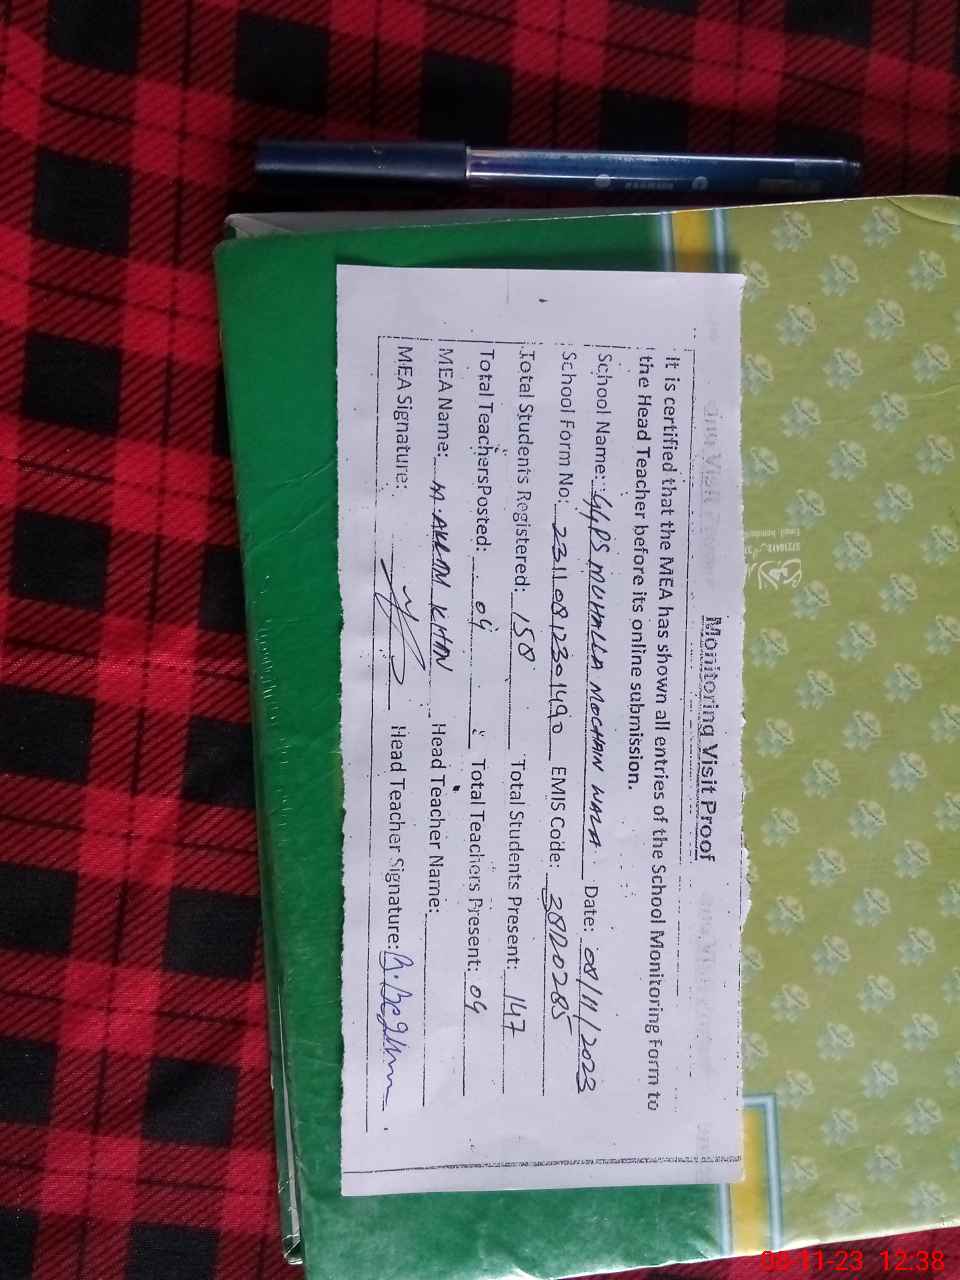 Monitoring Visit Proof
It is certified that the MEA has shown all entries of the School Monitoring Form to
the Head Teacher before its online submission.
School Name: GGPS MUHALLA MOCHAIN WALA Date: 08/11/2023
School Form No: 23110812301490 EMIS Code: 38D0285
Total Students Registered: 158 Total Students Present: 147
Total Teachers Posted: 09 Total Teachers Present: 09
MEA Name: M. AKRAM KHAN Head Teacher Name:
MEA Signature: Head Teacher Signature: B. Begum
08-11-23 12:38